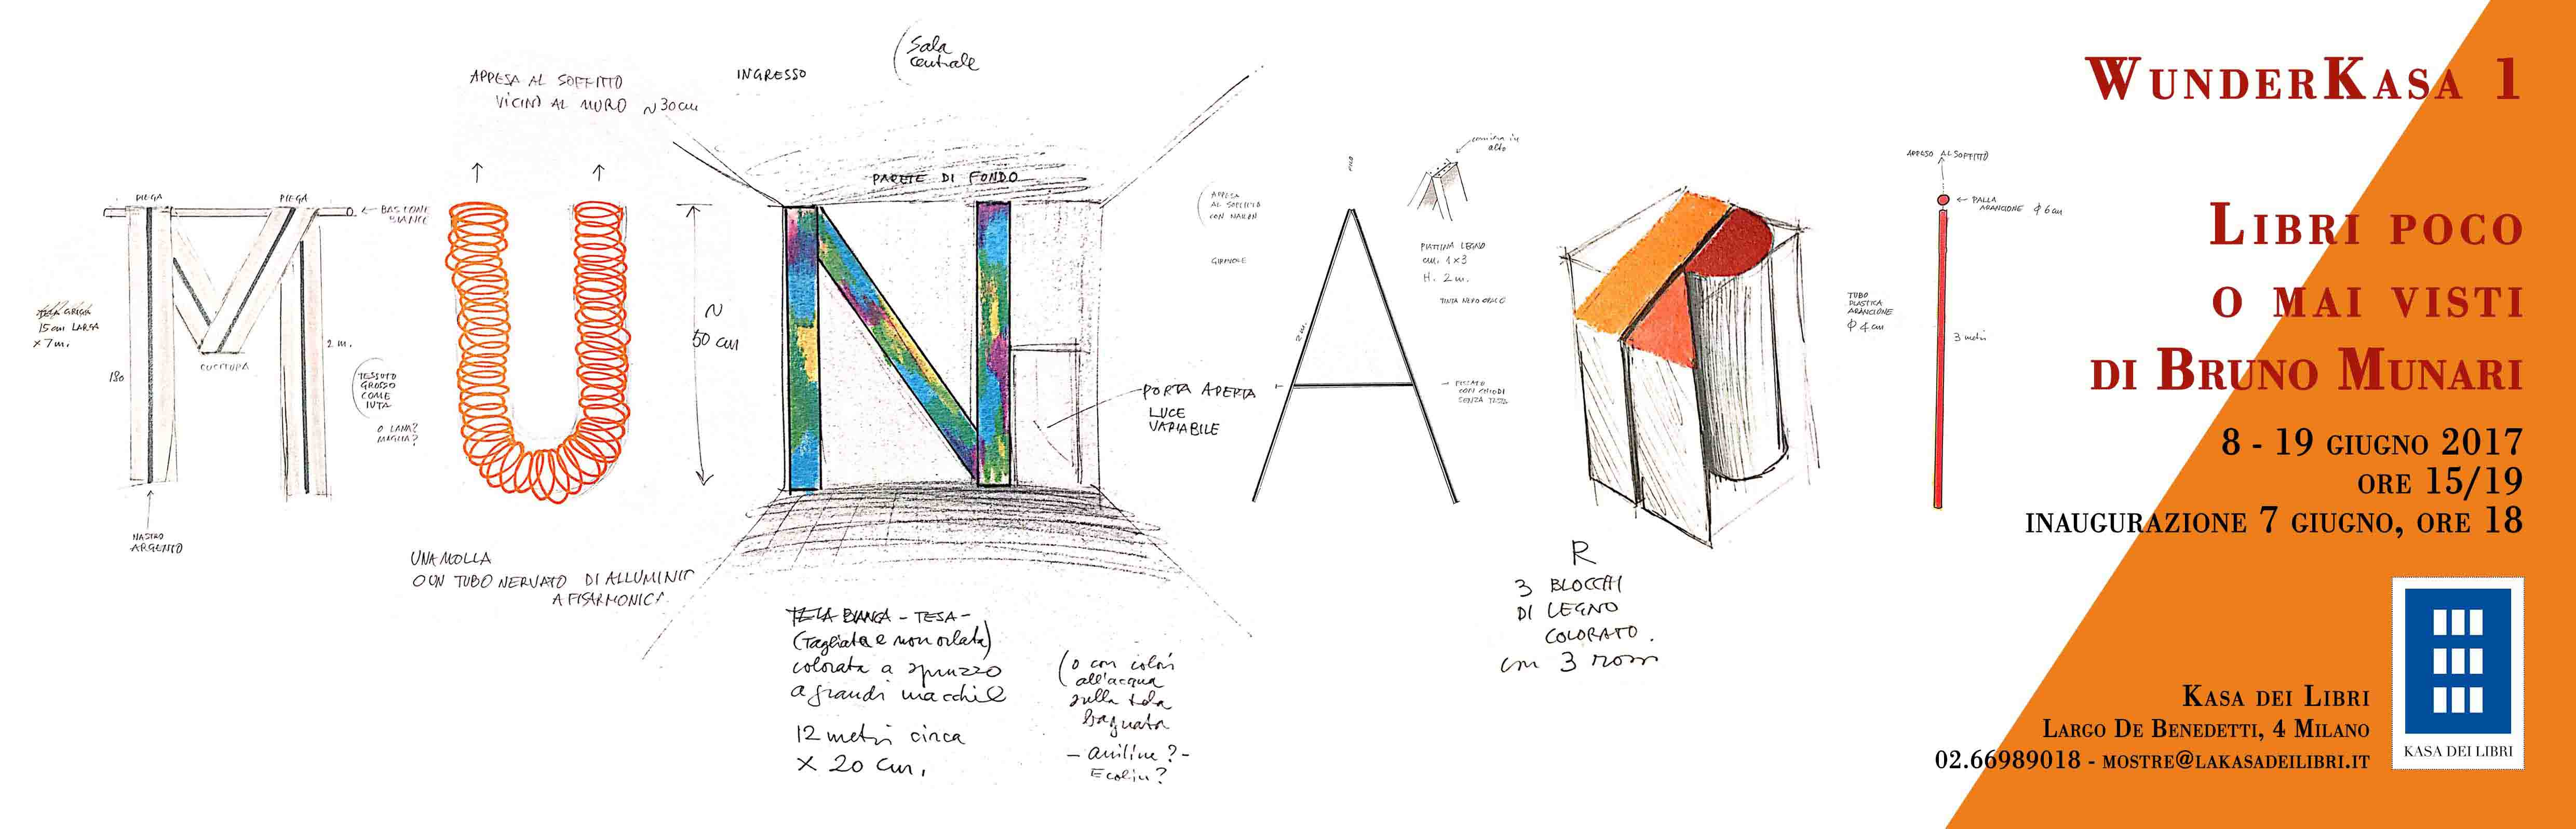 PIEGA
PIEGA
BASTONE
BIANCO
TELA GRIGIA
15 cm LARGA
x 7 m.
180
2 m.
CUCITURA
TESSUTO
GROSSO
COME
IUTA
O LANA?
MAGLIA?
NASTRO
ARGENTO
APPESA AL SOFFITTO
VICINO AL MURO ~ 30 cm
UNA MOLLA
O UN TUBO NERVATO DI ALLUMINIO
A FISARMONICA.
INGRESSO
(Sala
centrale
PARETE DI FONDO
N
~
50 cm
PORTA APERTA
LUCE
VARIABILE
TELA BIANCA - TESA -
(Tagliata e non orlata)
colorata a spruzzo
a grandi macchie
12 metri circa
x 20 cm.
(o con colori
all'acqua
sulla tela
bagnata
- aniline? -
Ecolin?
APPESA
AL SOFFITTO
CON NAILON
GIREVOLE
FILO
A
cerniera in
alto
PIATTINA LEGNO
cm. 1x3
H. 2 m.
TINTA NERO OPACO
2 m.
FISSATO
CON CHIODI
SENZA TESTA
R
3 BLOCCHI
DI LEGNO
COLORATO.
con 3 rossi
APPESO AL SOFFITTO
PALLA
ARANCIONE ϕ 6 cm
TUBO
PLASTICA
ARANCIONE
ϕ 4 cm
3 metri
WunderKasa 1
Libri poco
o mai visti
di Bruno Munari
8 - 19 giugno 2017
ore 15/19
inaugurazione 7 giugno, ore 18
Kasa dei Libri
Largo De Benedetti, 4 Milano
02.66989018 - mostre@lakasadeilibri.it
KASA DEI LIBRI